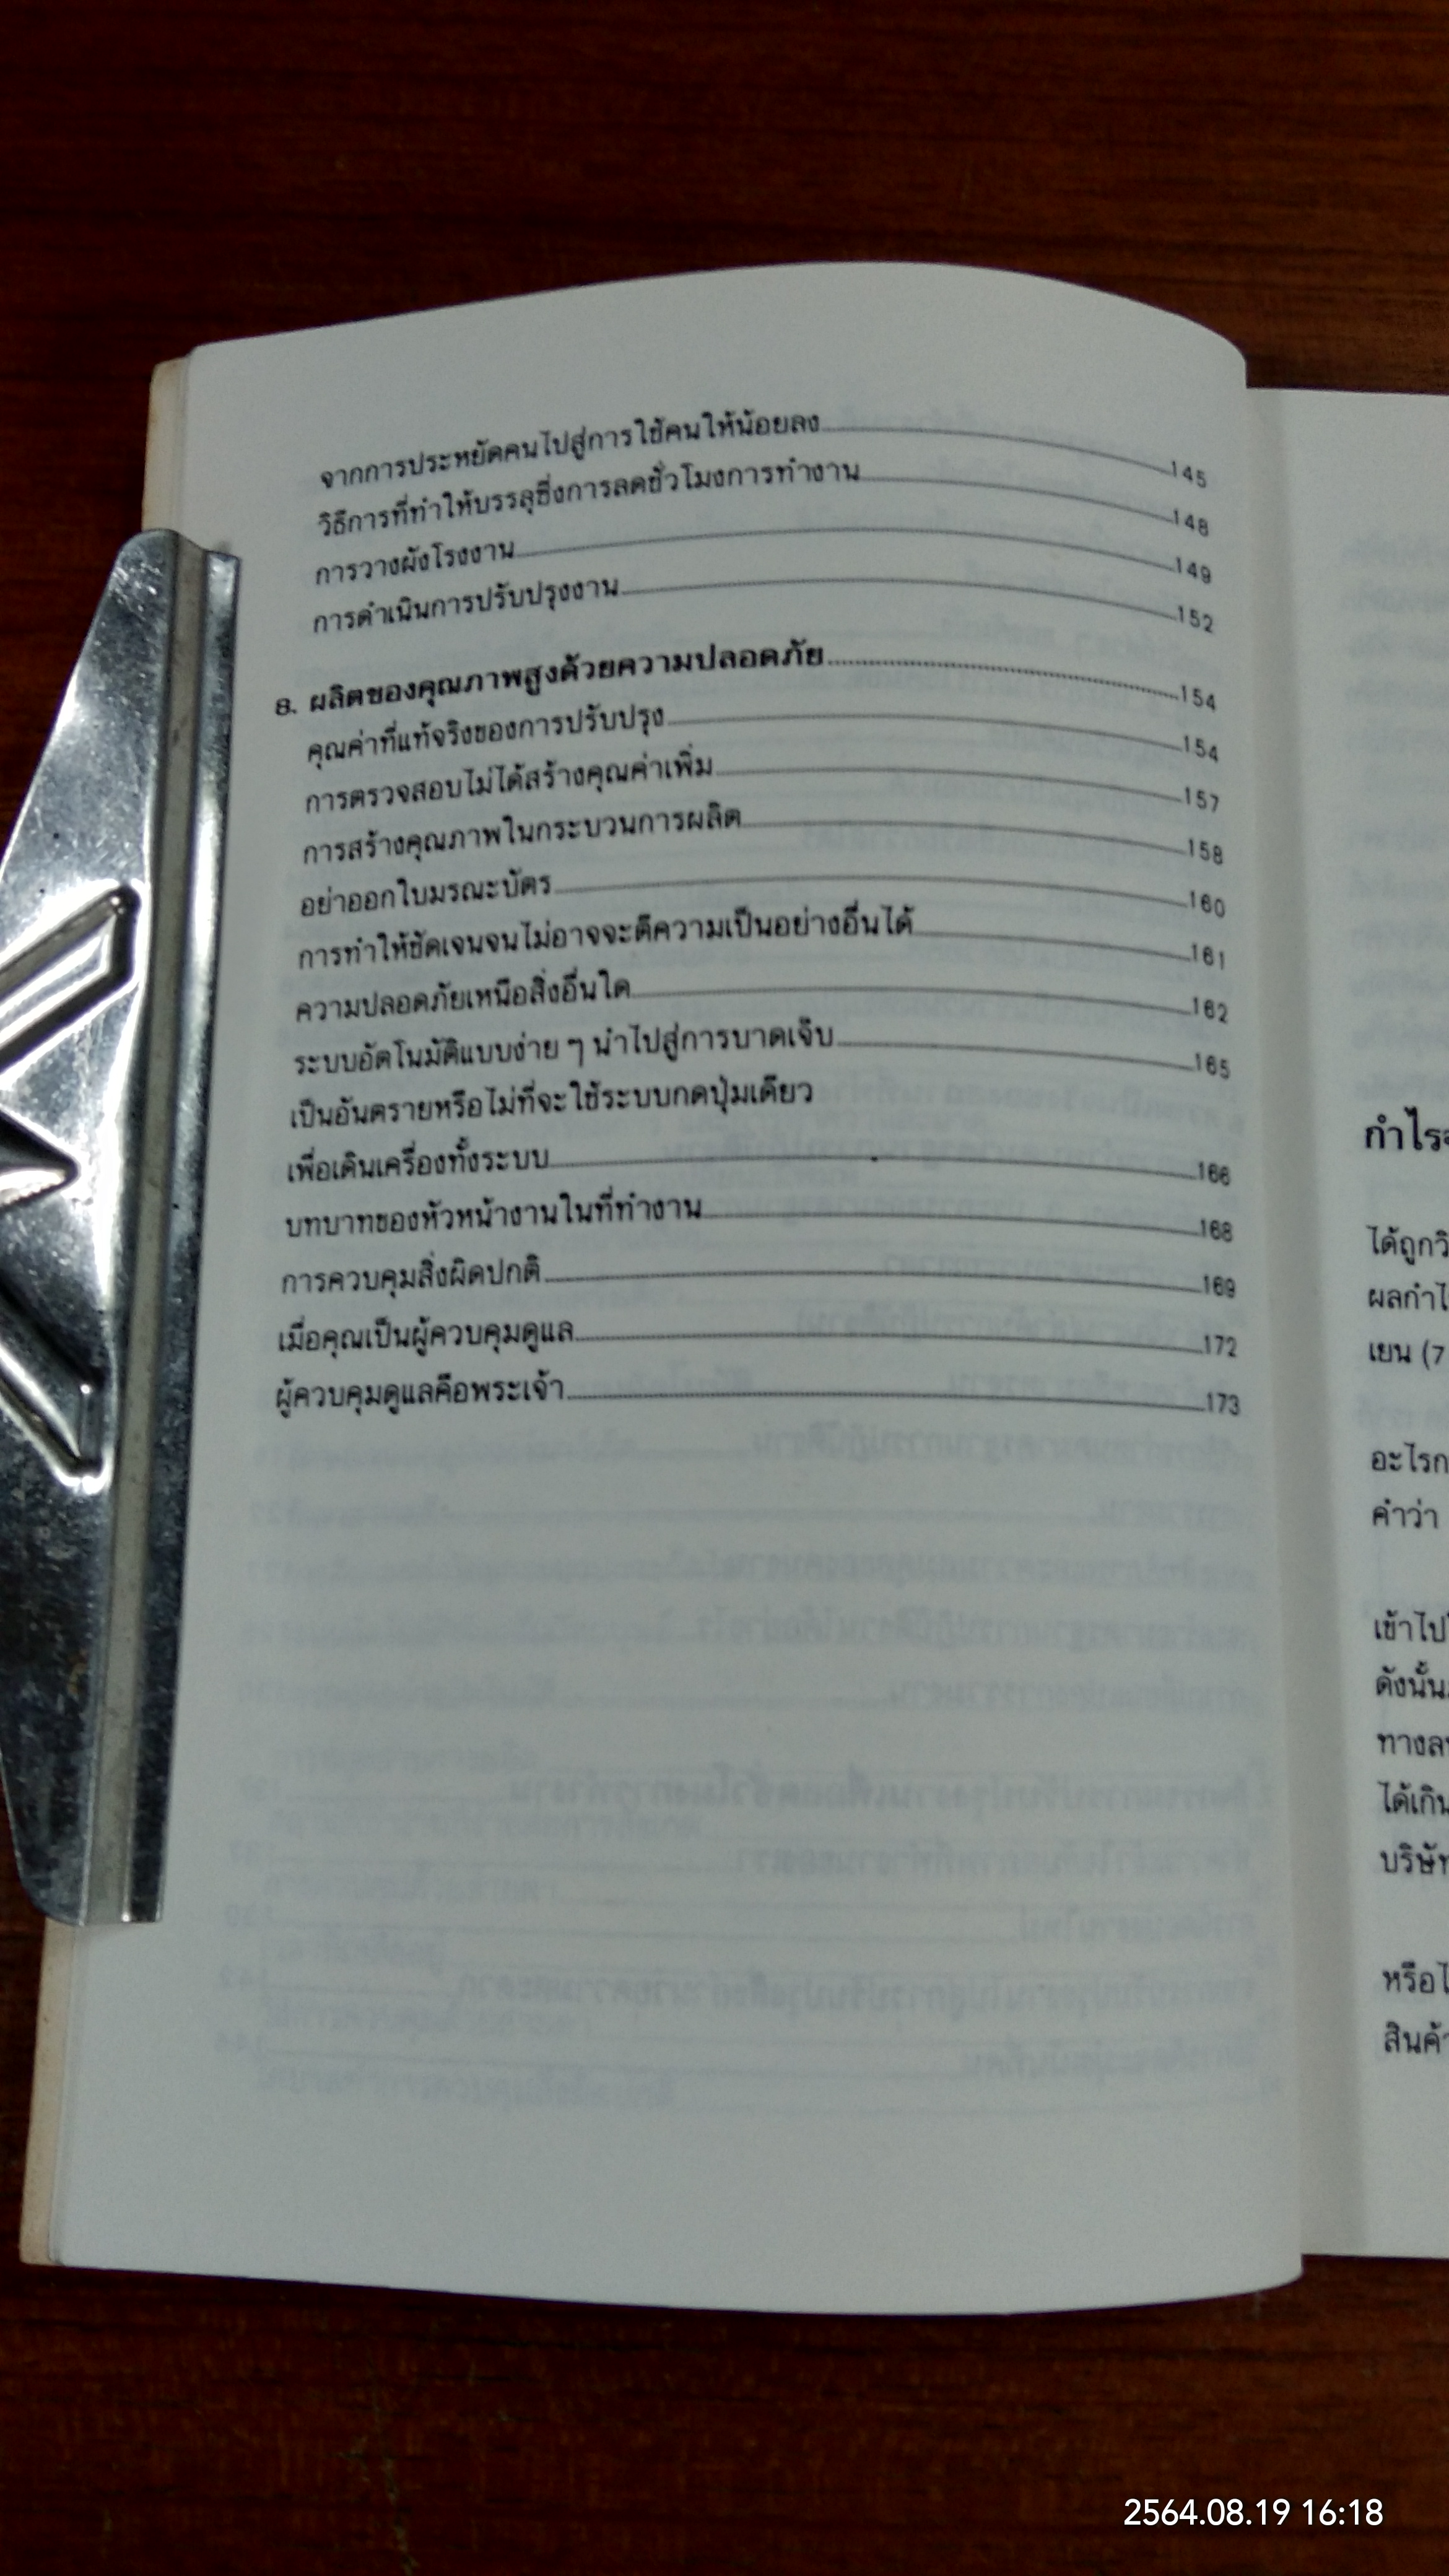 จากการประหยัดคนไปสู่การใช้คนให้น้อยลง 145
วิธีการที่ทำให้บรรลุซึ่งการลดชั่วโมงการทำงาน 148
การวางผังโรงงาน 149
การดำเนินการปรับปรุงงาน 152
8. ผลิตของคุณภาพสูงด้วยความปลอดภัย 154
คุณค่าที่แท้จริงของการปรับปรุง 154
การตรวจสอบไม่ได้สร้างคุณค่าเพิ่ม 157
การสร้างคุณภาพในกระบวนการผลิต 158
อย่าออกใบมรณะบัตร 160
การทำให้ชัดเจนจนไม่อาจจะตีความเป็นอย่างอื่นได้ 161
ความปลอดภัยเหนือสิ่งอื่นใด 162
ระบบอัตโนมัติแบบง่าย ๆ นำไปสู่การบาดเจ็บ 165
เป็นอันตรายหรือไม่ที่จะใช้ระบบกดปุ่มเดียว
เพื่อเดินเครื่องทั้งระบบ 166
บทบาทของหัวหน้างานในที่ทำงาน 168
การควบคุมสิ่งผิดปกติ 169
เมื่อคุณเป็นผู้ควบคุมดูแล 172
ผู้ควบคุมดูแลคือพระเจ้า 173
กำไร
ได้ถูก
ผลกำไ
เยน (7
อะไร
คำว่า
เข้าไป
ดังนั้น
ทาง
ได้เกิน
บริษัท
หรือ
สินค้า
2564.08.19 16:18